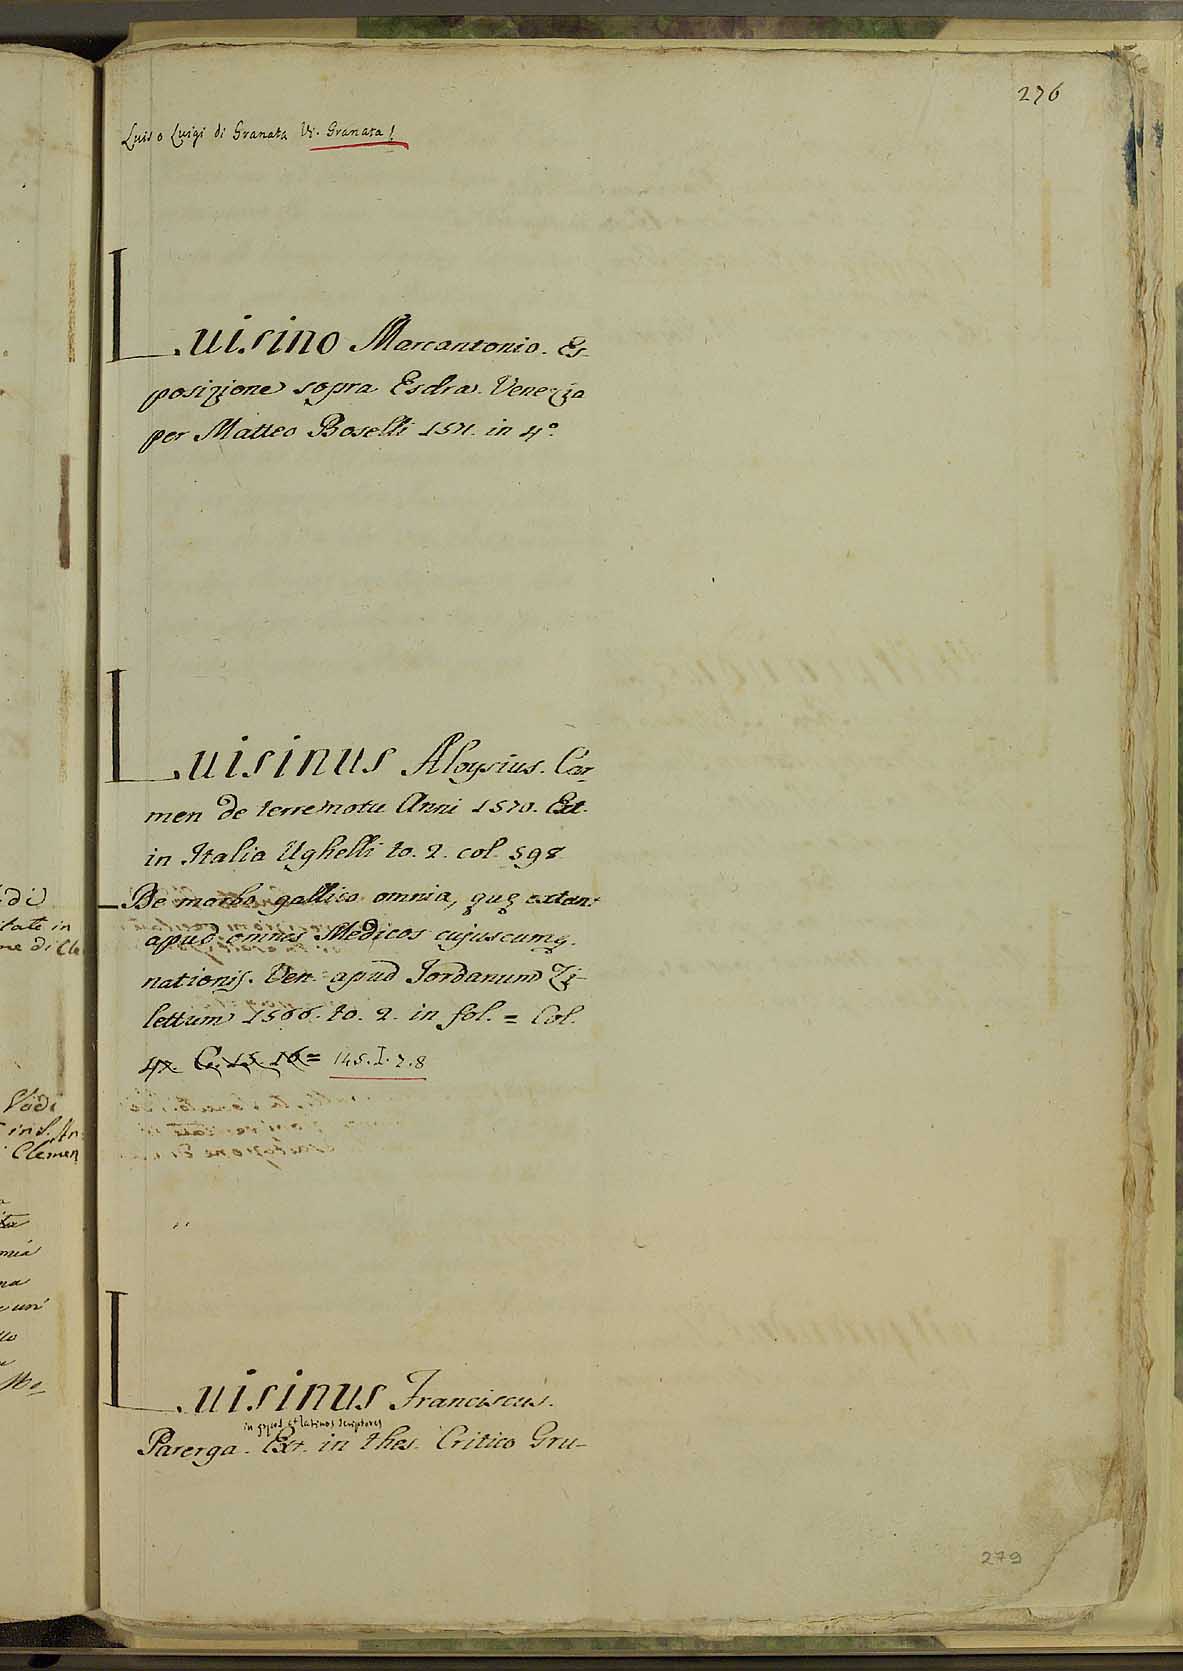 276
Luis o Luigi di Granata Vi. Granata!
Luisino Marcantonio. Es-
posizione sopra Esdra. Venezia
per Matteo Boselli 1571. in 4°.
Luisinus Aloysius. Car
men de terremotu Anni 1570. Ext.
in Italia Ughelli to. 2. col. 598
De morbo gallico omnia, quę extant
apud omnes Medicos cujuscumq.
nationis. Ven. apud Jordanum Zi-
lettum 1566. to. 2. in fol. = Col.
47. C. 15. 16 = 145. I. 7. 8
Luisinus Franciscus.
in gręcos et latinos scriptores
Parerga. Ext. in thes. Critico Gru-
279
di
tate in
ne di Cle
Vadi
in S. An
Clemen
mia
na
un
Mo